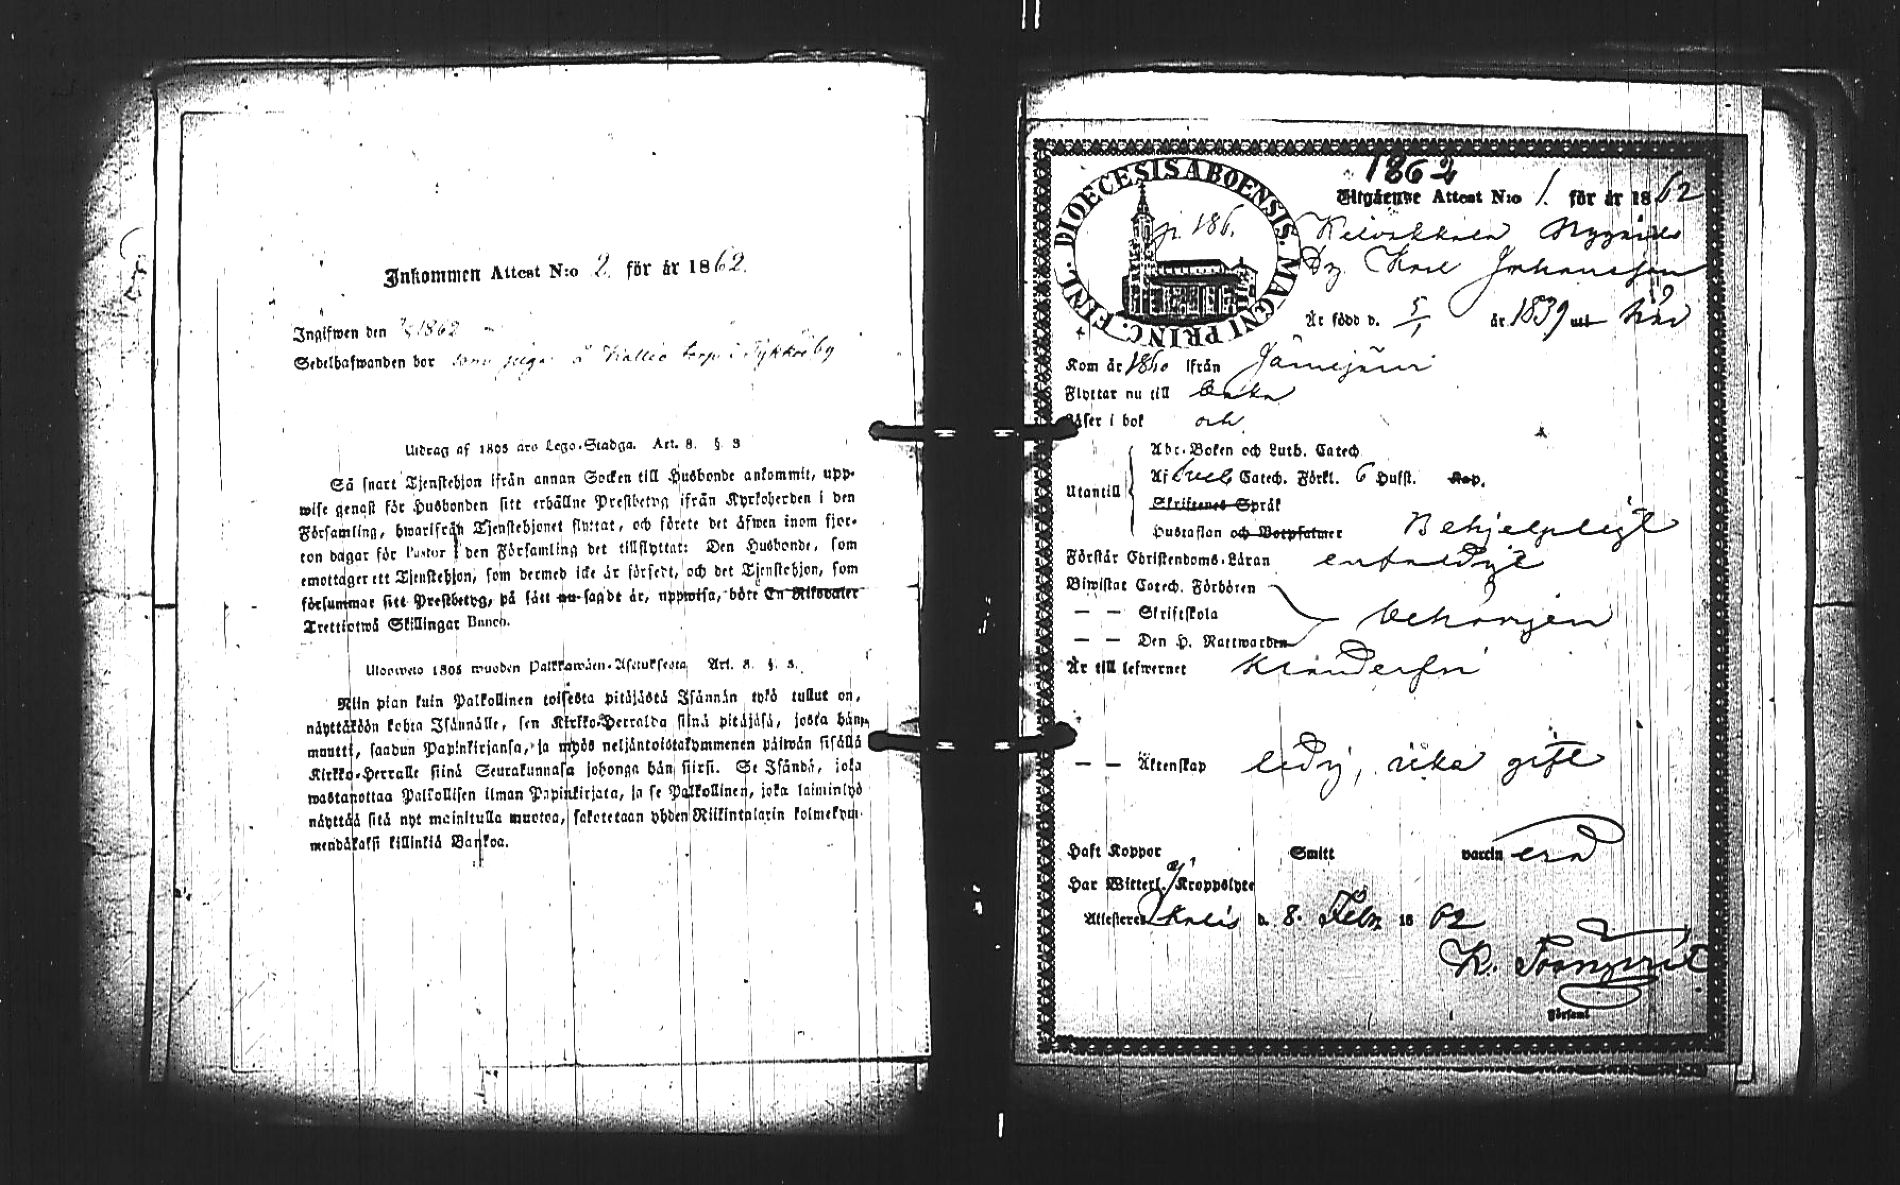 Inkommen Attest N:o 2. för år 1862.
Ingifwen den 1862
Sedelhafwanden bor som piga å Kallio torp i Tykköby
Utdrag af 1805 års Lego-Stadga. Art. 8. §. 3
Så snart Tjenstehjon ifrån annan Socken till Husbonde ankommit, upp-
wise genast för Husbonden sitt erhållne Prestbetyg ifrån Kyrkoherden i den
Församling, hwarifrån Tjenstehjonet flyttat, och förete det äfwen inom fjor-
ton dagar för Pastor i den Församling det tillflyttat: Den Husbonde, som
emottager ett Tjenstehjon, som dermed icke är försedt, och det Tjenstehjon, som
försummar sitt Prestbetyg, på sätt nu sagdt är, uppwisa, böte En Riksdaler
Trettiotwå Skillingar Banco.
Ulosweto 1805 wuoden Palkkawäen-Asetuksesta Art. 8. §. 3.
Niin pian kuin Palkollinen toisesta pitäjästä Isännän tykö tullut on,
näyttäköön kohta Isännälle, sen Kirkko-Herralda siinä pitäjäsä, josta hän
muutti, saadun Papinkirjansa, ja myös neljäntoistakymmenen päiwän sisällä
Kirkko-Herralle siinä Seurakunnasa johonga hän siirsi. Se Isändä, joka
wastanottaa Palkollisen ilman Papinkirjata, ja se Palkollinen, joka laiminlyö
näyttää sitä nyt mainitulla muotoa, sakotetaan yhden Riikintalarin kolmekym-
mendäkaksi killinkiä Bankoa.
1862
DIOECESIS ABOENSIS. MAGNI PRINC. FINL.
p. 186.
Utgåenve Attest N:o 1. för år 1862
Dr. Karl Johansson
Är född d. 5/1 år 1839 uti
Kom år 1860 ifrån
Flyttar nu till
Läser i bok och
Utantill
Abc-Boken och Luth. Catech
Af Catech. Förkl. 6 Hufst. Kap.
Skriftenes Språk
Hustaflan och Botpsalmer Behjelpligt
Förstår Christendoms-Läran enfaldigt
Biwistat Catech. Förhören
— — Skriftskola behörigen
— — Den H. Nattwarden
Är till lefwernet
— — Äktenskap ledig, icke gift
Haft Koppor Smitt vaccin
Har Witterl. Kroppslyte
Attesteras d. 8. Febr. 1862
Församl